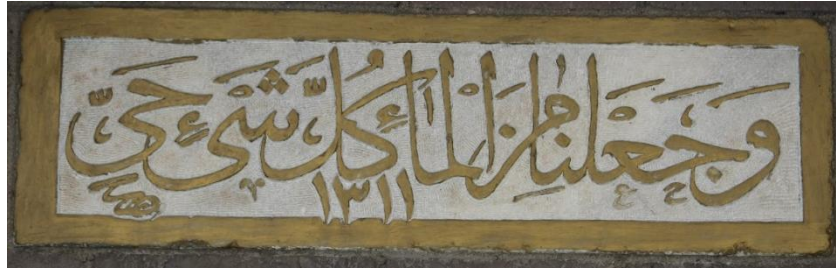 وَجَعَلْنَا مِنَ الْمَاءِ كُلَّ شَيْءٍ حَيٍّ
١٣١١